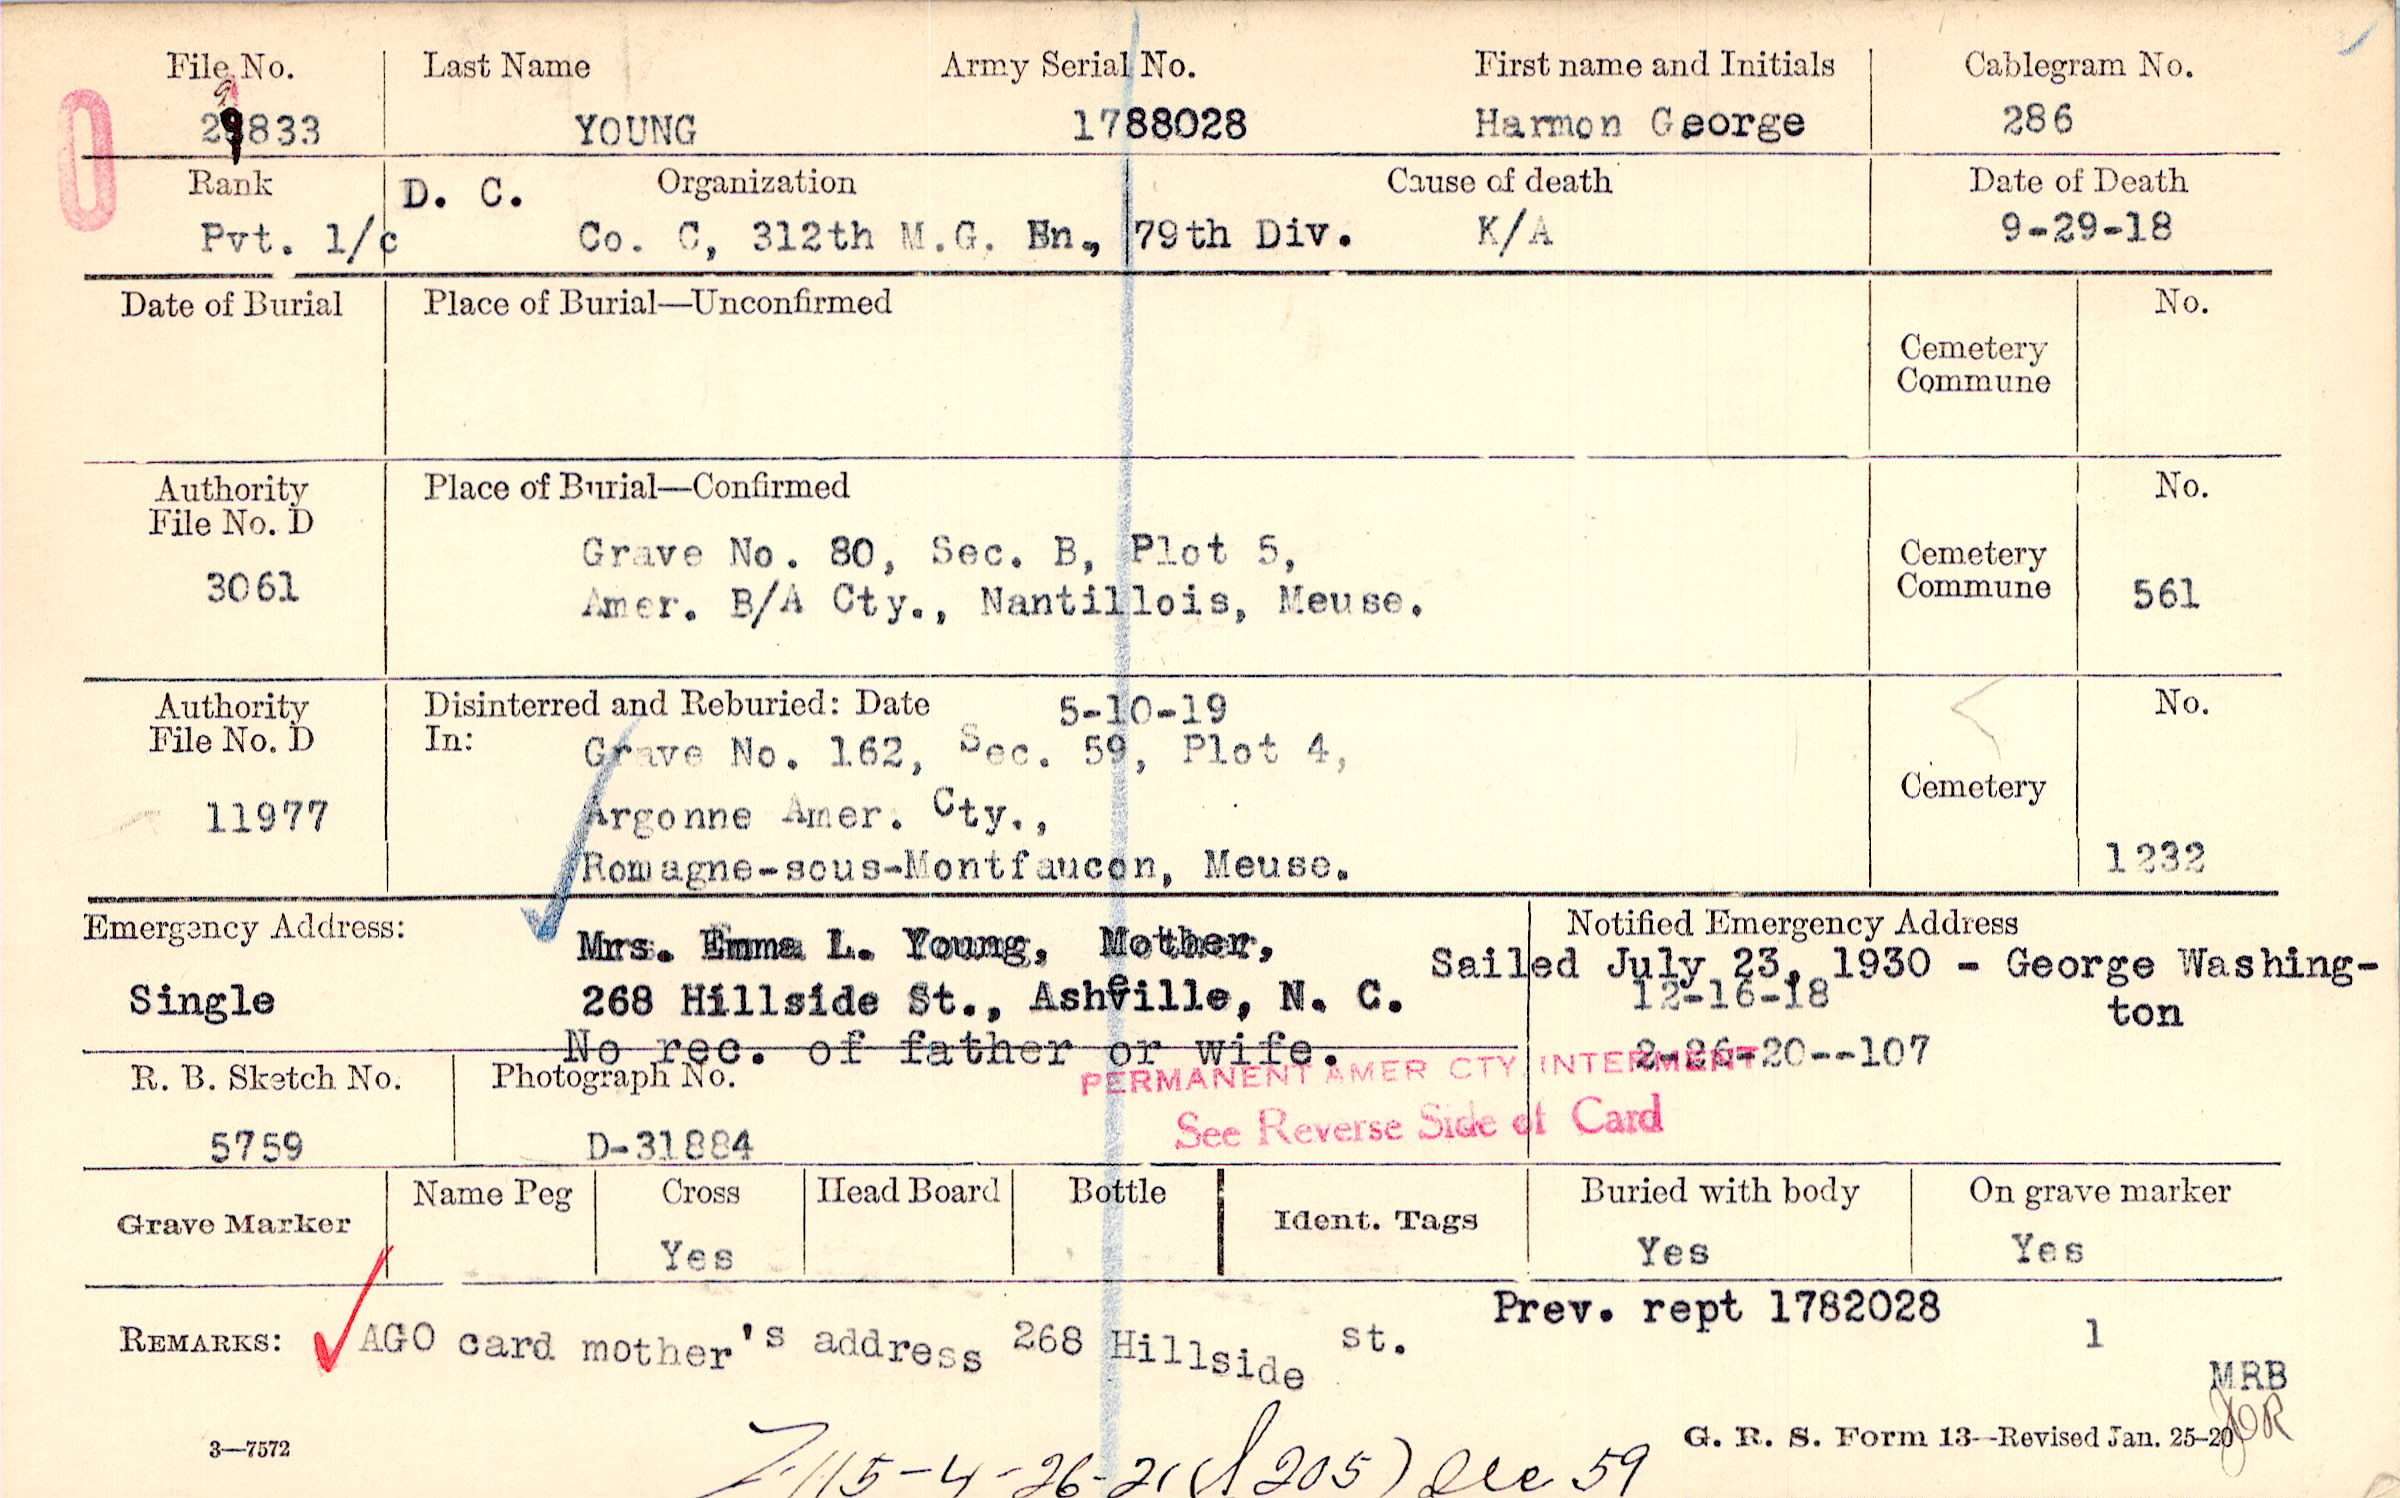 File No. Last Name Army Serial No. First name and Initials Cablegram No.
9
29833 YOUNG 1788028 Harmon George 286
Rank D. C. Organization Cause of death Date of Death
Pvt. 1/c Co. C, 312th M.G. Bn., 79th Div. K/A 9-29-18
Date of Burial Place of Burial—Unconfirmed No.
Cemetery
Commune
Authority Place of Burial—Confirmed No.
File No. D
Grave No. 80, Sec. B, Plot 5, Cemetery
3061 Amer. B/A Cty., Nantillois, Meuse. Commune 561
Authority Disinterred and Reburied: Date 5-10-19 No.
File No. D In: Grave No. 162, Sec. 59, Plot 4,
Cemetery
11977 Argonne Amer. Cty.,
Romagne-sous-Montfaucon, Meuse. 1232
Emergency Address: Mrs. Emma L. Young, Mother, Notified Emergency Address
Sailed July 23, 1930 - George Washing-
ton
Single 268 Hillside St., Asheville, N. C. 12-16-18
No rec. of father or wife. 2-26-20--107
R. B. Sketch No. Photograph No. PERMANENT AMER CTY. INTERMENT
See Reverse Side of Card
5759 D-31884
Grave Marker Name Peg Cross Head Board Bottle Ident. Tags Buried with body On grave marker
Yes Yes Yes
Prev. rept 1782028
REMARKS: AGO card mother's address 268 Hillside st. 1
MRB
3—7572 G. R. S. Form 13—Revised Jan. 25-20
59